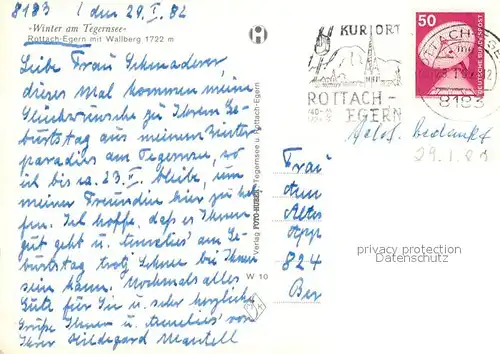 8183 / den 29.I.82
«Winter am Tegernsee»
Rottach-Egern mit Wallberg 1722 m
Liebe Frau
dieses Mal kommen meine
Glückwünsche zu Ihrem Ge-
burtstag aus meinem Winter
paradies am Tegernsee, wo
ich bis 23. bleibe, um
meine Freundin hier zu tref
fen. Ich hoffe, daß es Ihnen
gut geht u. am Ge
burtstag trotz bei Ihnen
sein kann. Nochmals alles
Gute für Sie u. sehr herzliche
Grüße Ihnen u. von
Ihrer Hildegard
Verlag FOTO-HUBER, Tegernsee u. Rottach-Egern
W 10
KURORT
ROTTACH-
EGERN
50
DEUTSCHE BUNDESPOST
8183
bedankt
29.1.82
Frau
Ann
Altes
App
824
Ber
privacy protection
Datenschutz